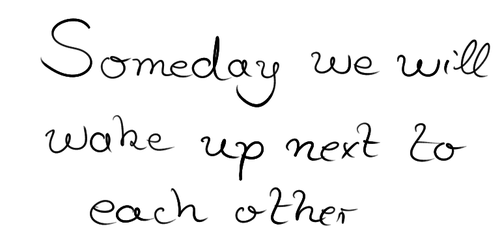 Someday we will
wake up next to
each other